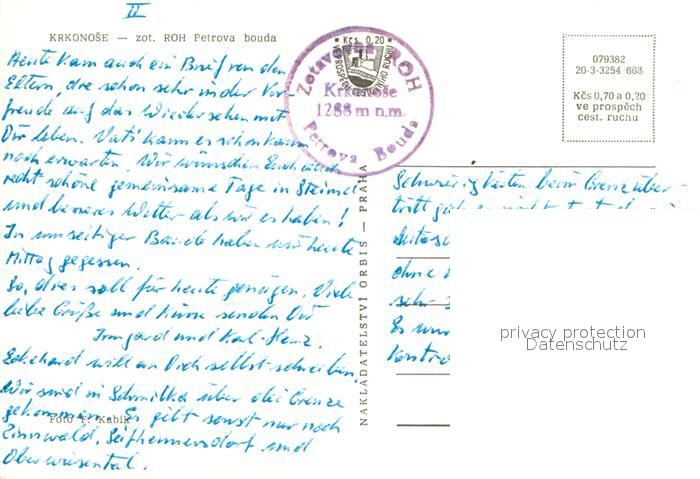 II
KRKONOŠE — zot. ROH Petrova bouda
Heute kam auch ein Brief von den
Eltern, die schon sehr in der Vor-
freude auf das Wiedersehen mit
Dir leben. Vati kann es schon kaum
noch erwarten. Wir wünschen Euch
recht schöne gemeinsame Tage in
und besseres Wetter als wir es haben!
In umseitiger Baude haben wir heute
Mittag gegessen.
So, dies soll für heute genügen. Viele
liebe Grüße und Küsse senden Dir
Irmgard und Karl-Heinz.
Eckehard will an Dich selbst schreiben.
Wir sind in Schmilka über die Grenze
gekommen. Es gibt sonst nur noch
Zinnwald, Seifhennersdorf und
Oberwiesental.
Foto F. Kabík
Kčs 0,20
VE PROSPĚCH CESTOVNÍHO RUCHU
Zotavovna ROH
Krkonoše
1288 m n.m.
Petrova Bouda
NAKLADATELSTVÍ ORBIS — PRAHA
079382
20-3-3254 668
Kčs 0,70 a 0,20
ve prospěch
cest. ruchu
Schwierigkeiten beim Grenzüber-
tritt
ohne
sehr
Es
Kontro
privacy protection
Datenschutz